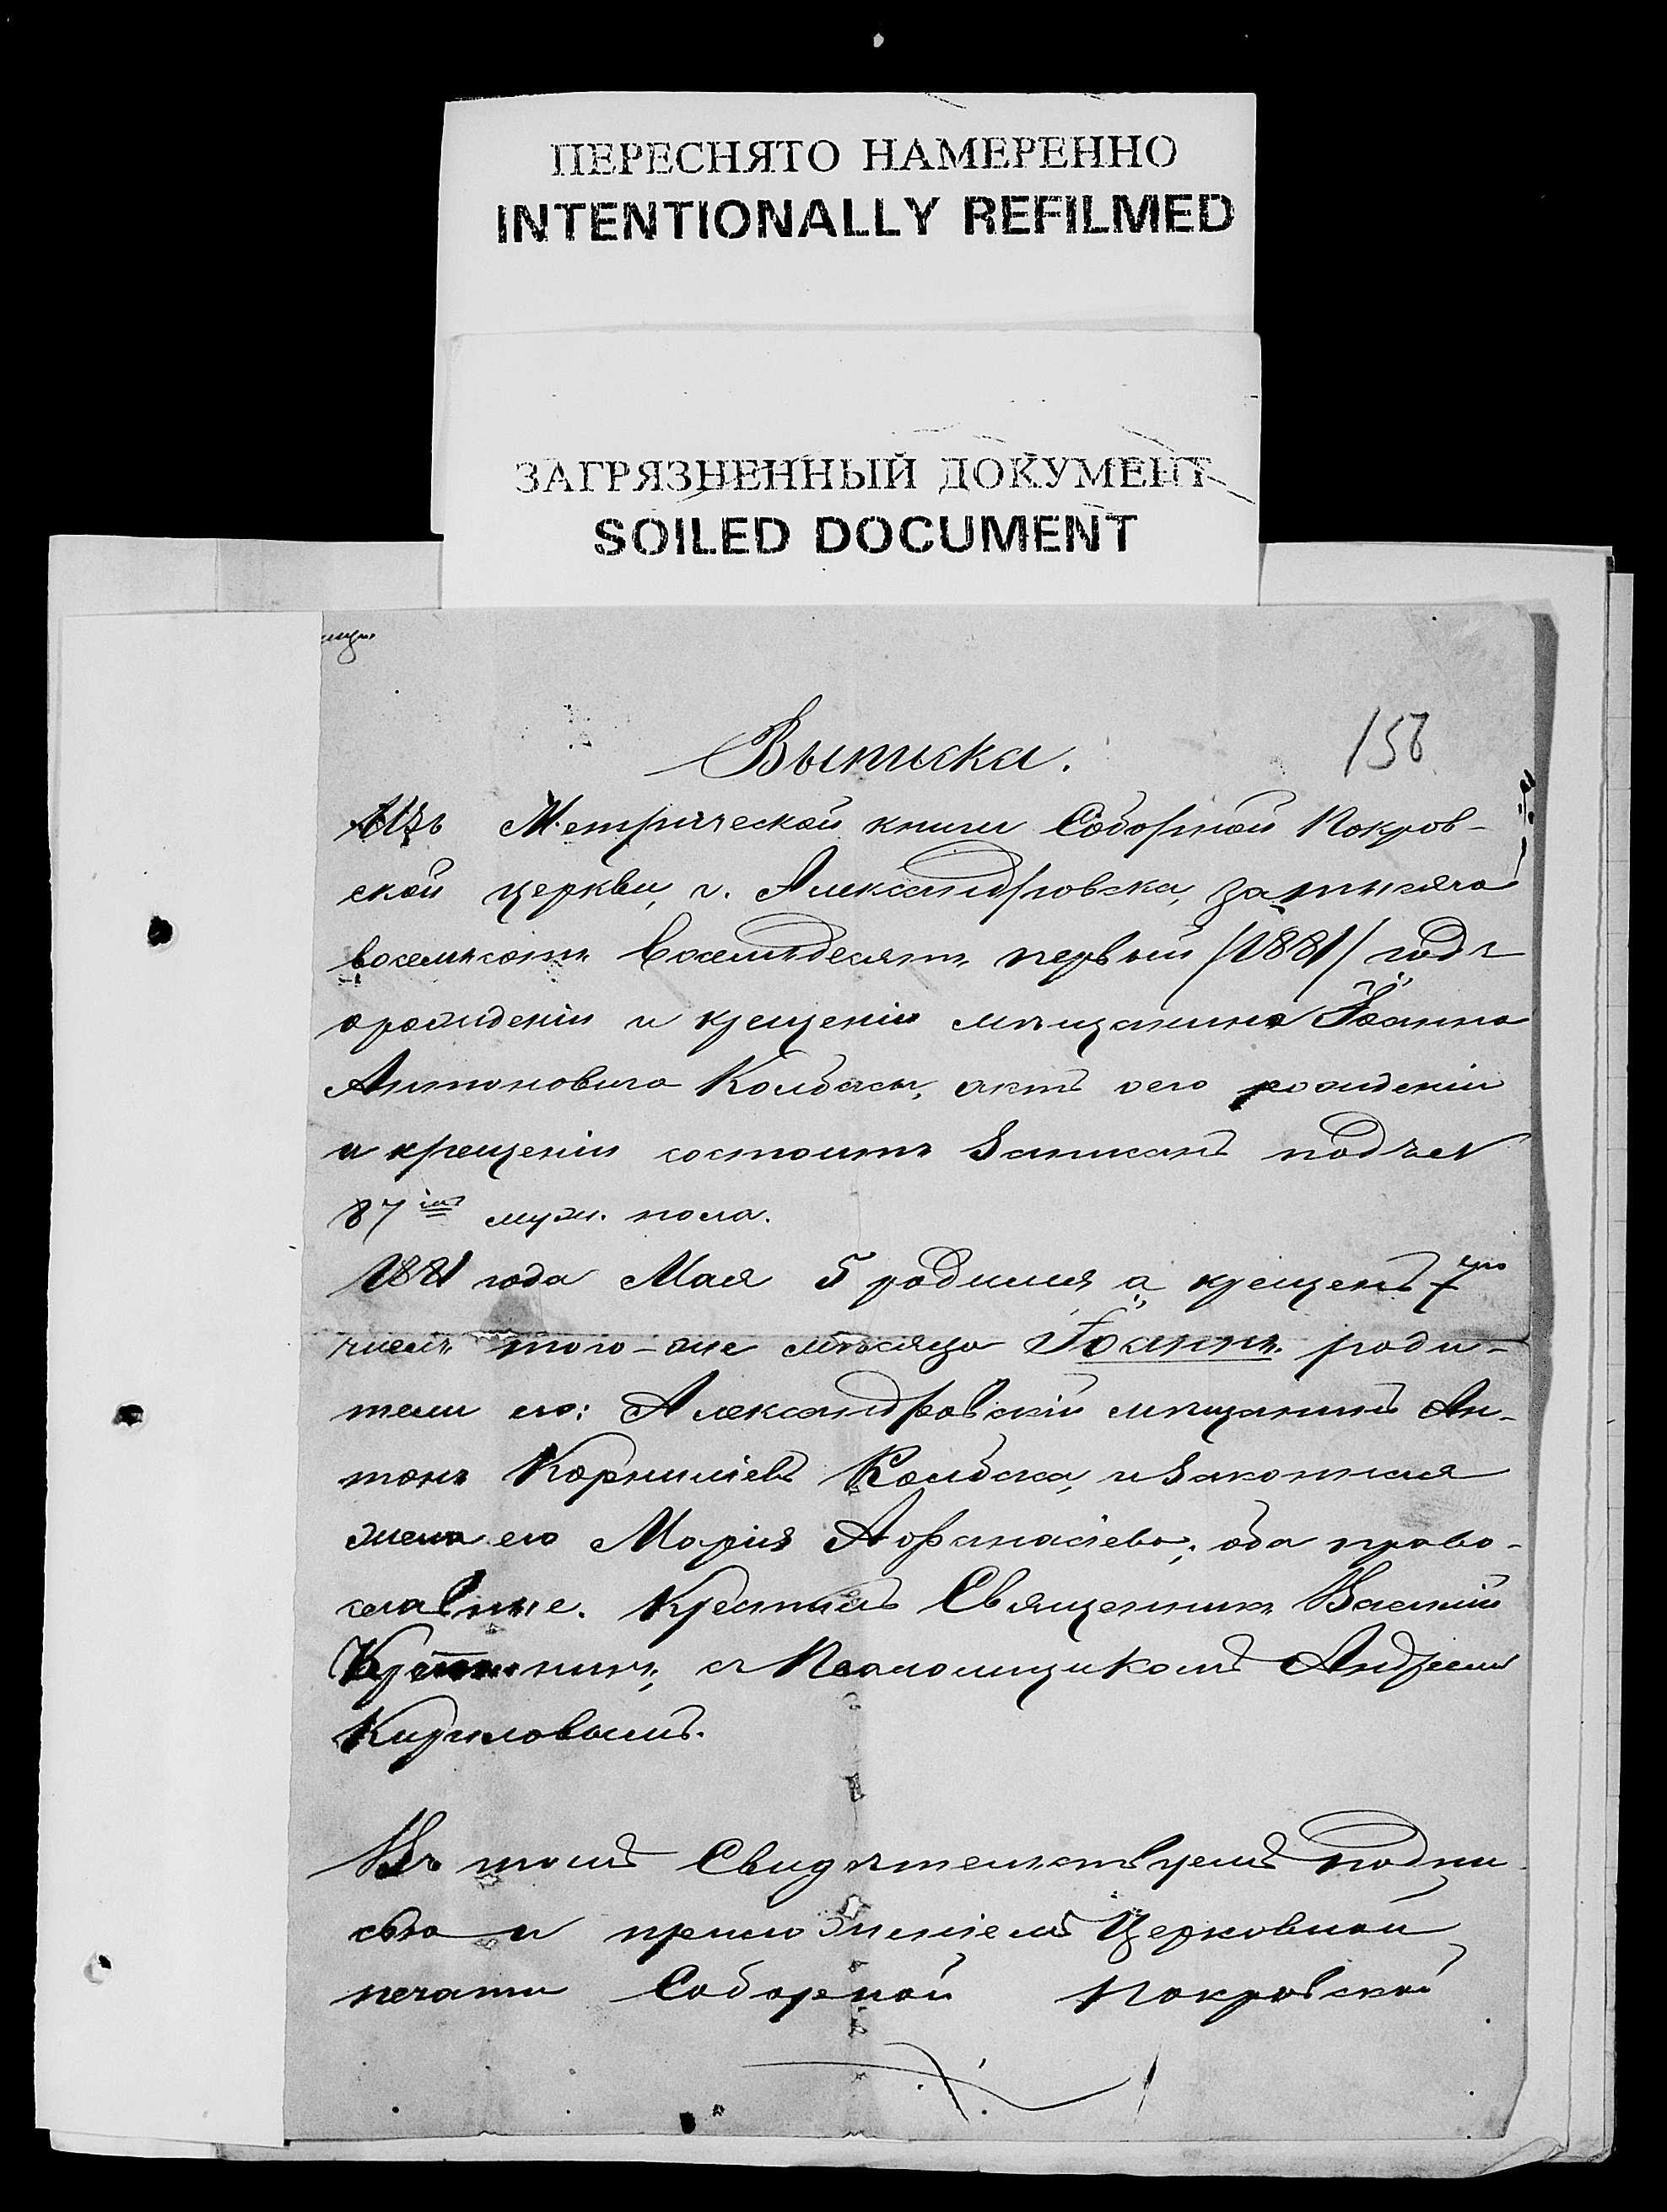 ПЕРЕСНЯТО НАМЕРЕННО
INTENTIONALLY REFILMED
ЗАГРЯЗНЕННЫЙ ДОКУМЕНТ
SOILED DOCUMENT
158
Выписка.
Изъ Метрической книги Соборной Покров-
ской церкви, г. Александровска, за тысяча
восемьсотъ восемьдесятъ первый /1881/ годъ
о рожденіи и крещеніи мѣщанина Іоанна
Антоновича Колбасы, актъ о его рожденіи
и крещеніи состоитъ записанъ подъ №
87 муж. пола.
1881 года Мая 5 родился а крещенъ 7го
числа того-же мѣсяца Іоаннъ. роди-
тели его: Александровскій мѣщанинъ Ан-
тонъ Корниліевъ Колбаса, и законная
жена его Марія Аофанасіева; оба право-
славные. Крестилъ Священникъ Василій
съ Псаломщикомъ Андреемъ
Кириловымъ.
Въ томъ Свидѣтельствуемъ подпи
сью и приложеніемъ Церковной
печати Соборной Покровской